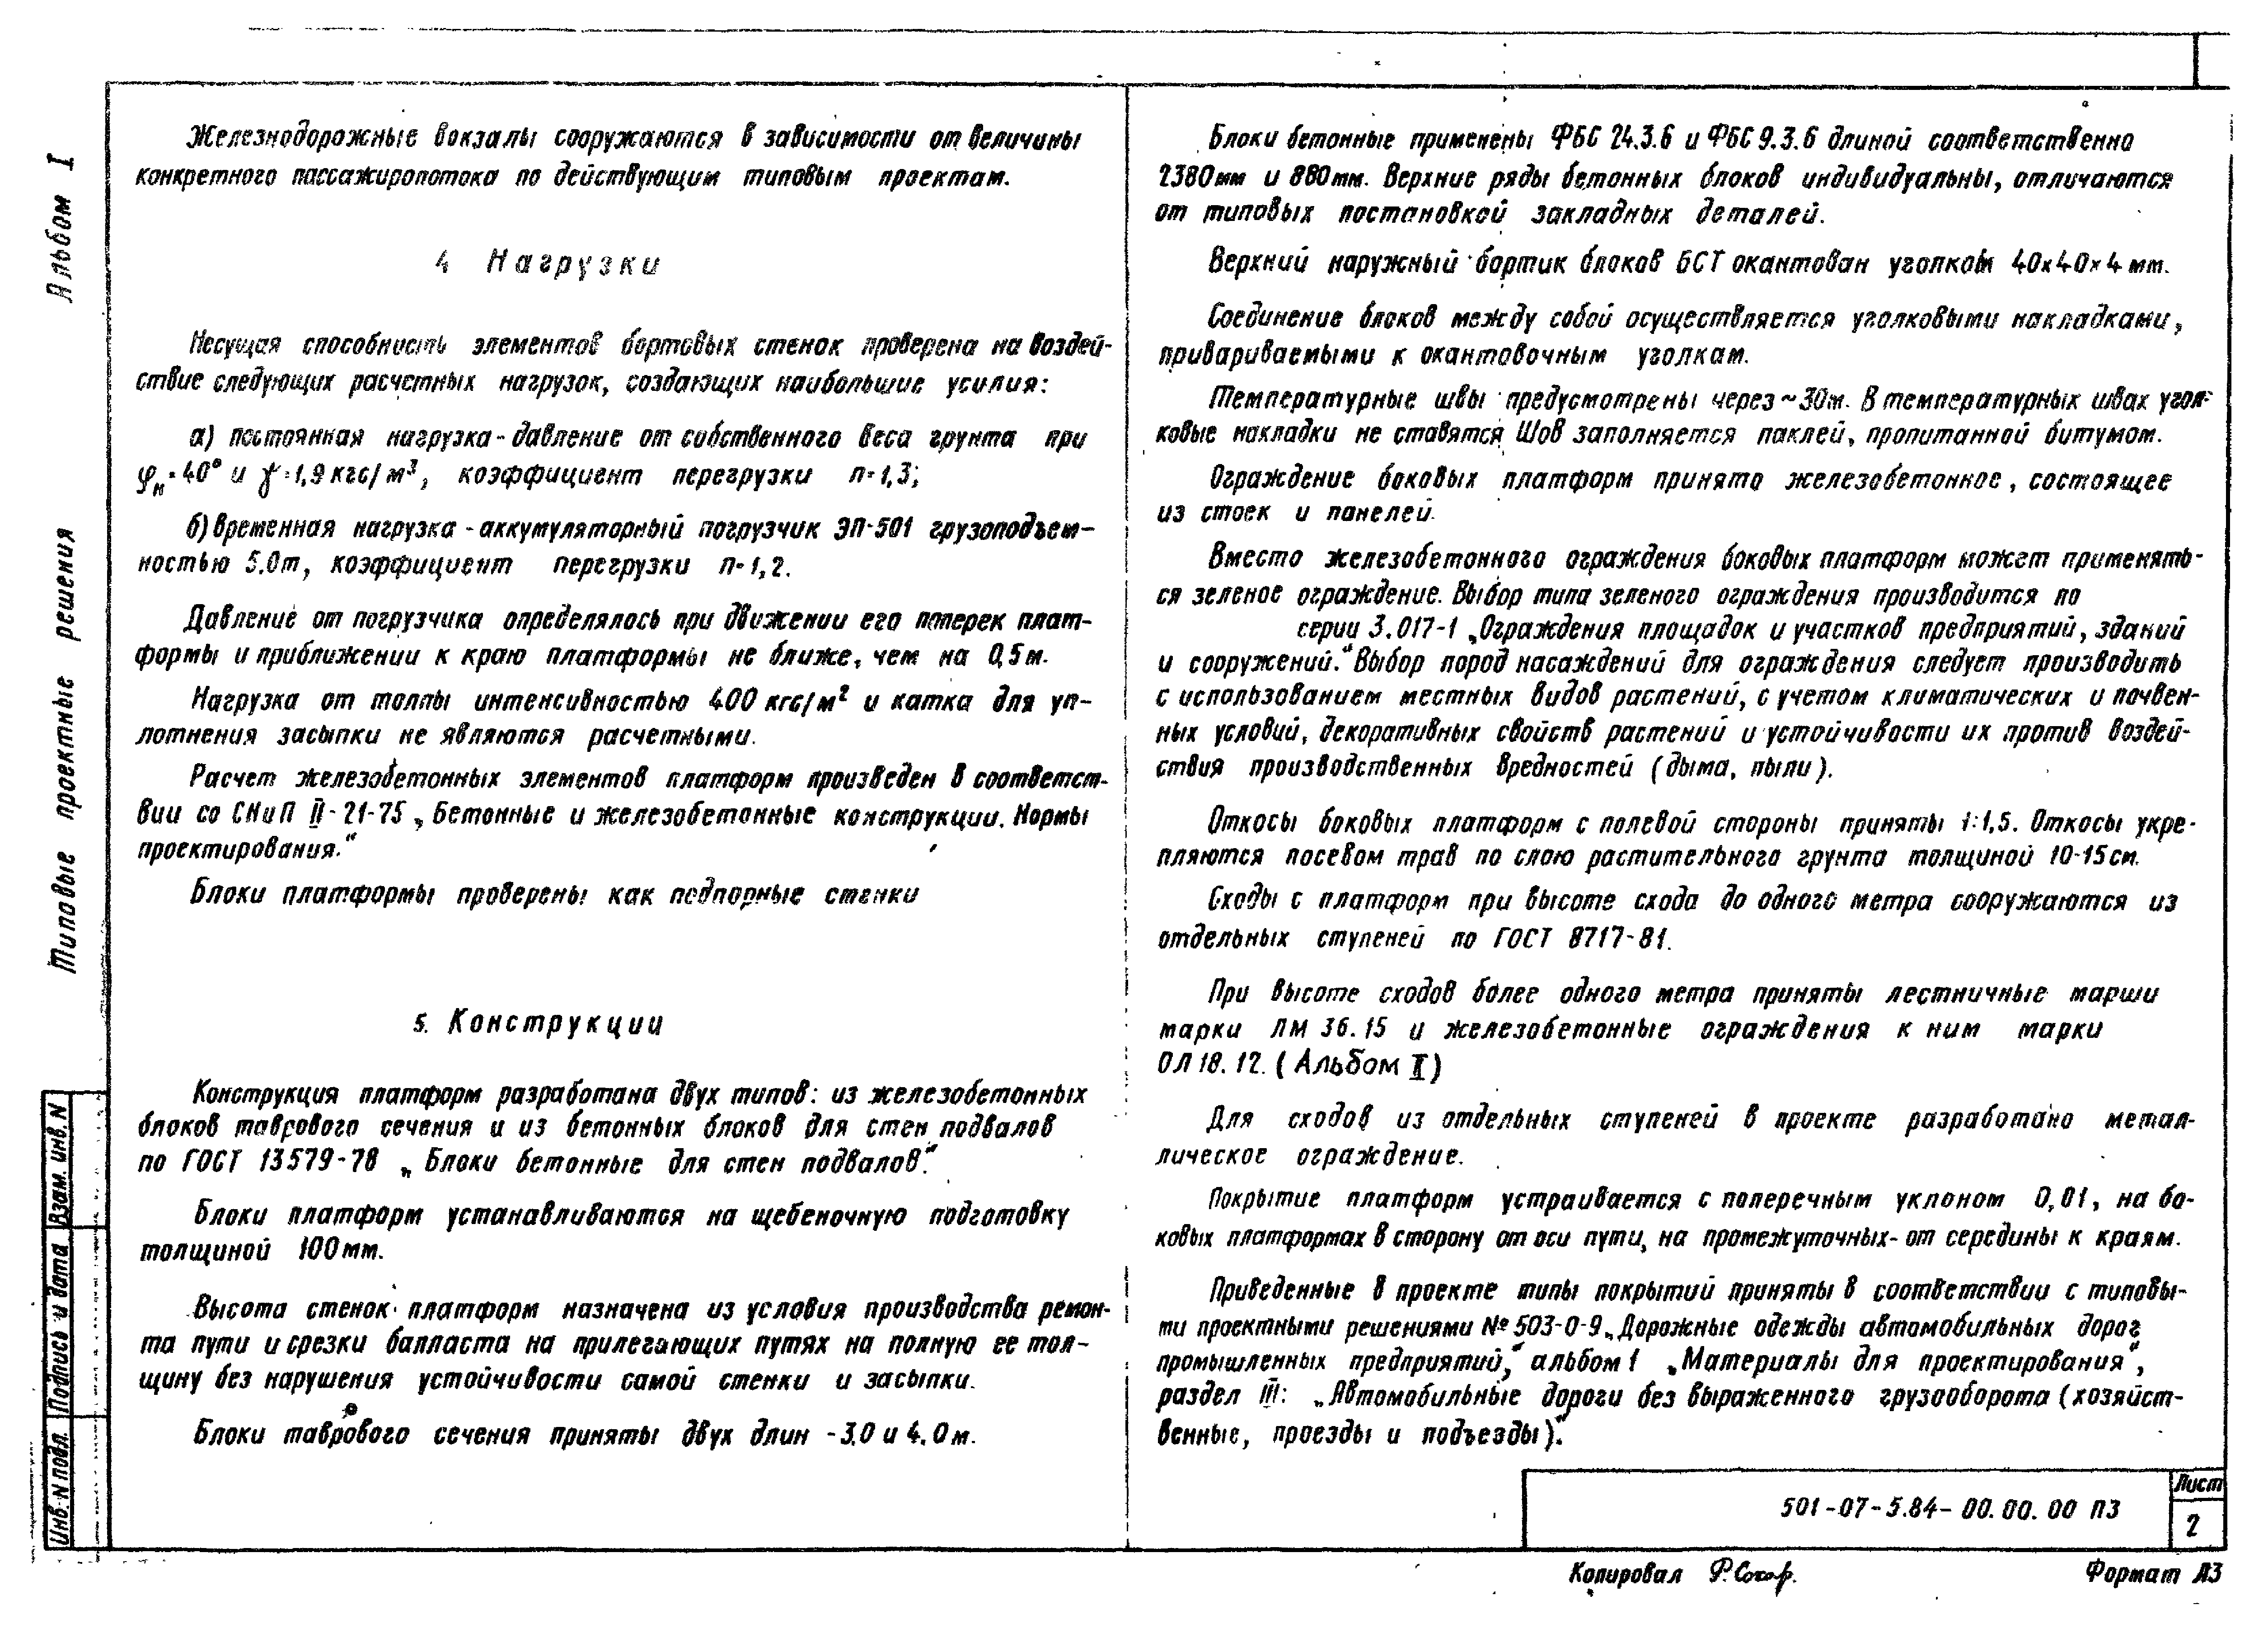 Альбом I
Типовые проектные решения
Взам. инв. N
Подпись и дата
Инв. N подл.
Железнодорожные вокзалы сооружаются в зависимости от величины
конкретного пассажиропотока по действующим типовым проектам.
4 Нагрузки
Несущая способность элементов бортовых стенок проверена на воздей-
ствие следующих расчетных нагрузок, создающих наибольшие усилия:
а) постоянная нагрузка - давление от собственного веса грунта при
φн=40° и γ=1,9 кгс/м³, коэффициент перегрузки n=1,3;
б) временная нагрузка - аккумуляторный погрузчик ЭП-501 грузоподъем-
ностью 5.0т, коэффициент перегрузки n=1,2.
Давление от погрузчика определялось при движении его поперек плат-
формы и приближении к краю платформы не ближе, чем на 0,5м.
Нагрузка от толпы интенсивностью 400 кгс/м² и катка для уп-
лотнения засыпки не являются расчетными.
Расчет железобетонных элементов платформ произведен в соответст-
вии со СНиП II-21-75 „Бетонные и железобетонные конструкции. Нормы
проектирования.“
Блоки платформы проверены как подпорные стенки
5. Конструкции
Конструкция платформ разработана двух типов: из железобетонных
блоков таврового сечения и из бетонных блоков для стен подвалов
по ГОСТ 13579-78 „Блоки бетонные для стен подвалов“.
Блоки платформ устанавливаются на щебеночную подготовку
толщиной 100мм.
Высота стенок платформ назначена из условия производства ремон-
та пути и срезки балласта на прилегающих путях на полную ее тол-
щину без нарушения устойчивости самой стенки и засыпки.
Блоки таврового сечения приняты двух длин - 3,0 и 4,0м.
Блоки бетонные применены ФБС 24.3.6 и ФБС 9.3.6 длиной соответственно
2380мм и 880мм. Верхние ряды бетонных блоков индивидуальны, отличаются
от типовых постановкой закладных деталей.
Верхний наружный бортик блоков БСТ окантован уголком 40х40х4 мм.
Соединение блоков между собой осуществляется уголковыми накладками,
привариваемыми к окантовочным уголкам.
Температурные швы предусмотрены через ~30м. В температурных швах угол-
ковые накладки не ставятся. Шов заполняется паклей, пропитанной битумом.
Ограждение боковых платформ принято железобетонное, состоящее
из стоек и панелей.
Вместо железобетонного ограждения боковых платформ может применять-
ся зеленое ограждение. Выбор типа зеленого ограждения производится по
серии 3.017-1 „Ограждения площадок и участков предприятий, зданий
и сооружений.“ Выбор пород насаждений для ограждения следует производить
с использованием местных видов растений, с учетом климатических и почвен-
ных условий, декоративных свойств растений и устойчивости их против воздей-
ствия производственных вредностей (дыма, пыли).
Откосы боковых платформ с полевой стороны приняты 1:1,5. Откосы укре-
пляются посевом трав по слою растительного грунта толщиной 10-15см.
Сходы с платформ при высоте схода до одного метра сооружаются из
отдельных ступеней по ГОСТ 8717-81.
При высоте сходов более одного метра приняты лестничные марши
марки ЛМ 36.15 и железобетонные ограждения к ним марки
ОЛ 18.12. (Альбом II)
Для сходов из отдельных ступеней в проекте разработано метал-
лическое ограждение.
Покрытие платформ устраивается с поперечным уклоном 0,01, на бо-
ковых платформах в сторону от оси пути, на промежуточных - от середины к краям.
Приведенные в проекте типы покрытий приняты в соответствии с типовы-
ми проектными решениями № 503-0-9 „Дорожные одежды автомобильных дорог
промышленных предприятий,“ альбом 1 „Материалы для проектирования“,
раздел III: „Автомобильные дороги без выраженного грузооборота (хозяйст-
венные, проезды и подъезды)“.
501-07-5.84-00.00.00 ПЗ
Лист
2
Копировал
Формат А3